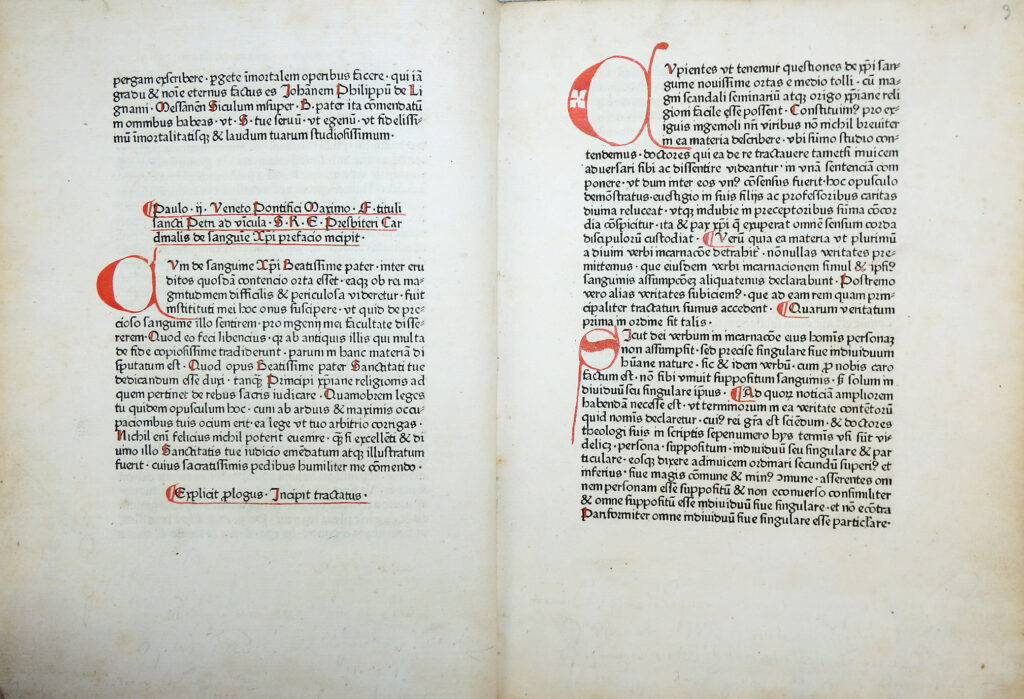 pergam exscribere · ꝑgete īmortalem operibus facere · qui iā
gradu & noīe eternus factus es Johānem Philippū de Li
gnami · Messanēn̄ Siculum insuper · B · pater ita comendatū
in omnibus habeas · vt · S · tue seruū · vt egenū · vt fidelissi-
mū īmortalitatisqꝫ & laudum tuarum studiosissimum ·
¶Paulo · ij · Veneto Pontifici Maximo · F · tituli
sancti Petri ad vīcula · S · R · E · Presbiteri Car
dinalis de sanguīe Xp̄i prefacio incipit ·
CVm de sanguine Xp̄i Beatissime pater · inter eru
ditos quosdā contencio orta esset · eaqꝫ ob rei ma-
gnitudinem difficilis & periculosa videretur · fuit
instituti mei hoc onus suscipere · vt quid de pre-
cioso sanguine illo sentirem · pro ingenij mei facultate disse-
rerem · Quod eo feci libencius · qꝫ ab antiquis illis qui multa
de fide copiosissime tradiderunt · parum in hanc materiā di
sputatum est · Quod opus Beatissime pater Sanctitati tue
dedicandum esse duxi · tanqꝫ Principi xp̄iane religionis ad
quem pertinet de rebus sacris iudicare · Quamobrem leges
tu quidem opusculum hoc · cum ab arduis & maximis occu-
pacionibus tuis ocium erit · ea lege vt tuo arbitrio corrigas ·
Nichil enī felicius michil poterit euenire · qꝫ si excellēti & di
uino illo Sanctitatis tue iudicio emēdatum atqꝫ illustratum
fuerit · cuius sacratissimis pedibus humiliter me cōmendo ·
¶Explicit ꝓlogus · Incipit tractatus ·
9
CVpientes vt tenemur questiones de xp̄i san-
guine nouissime ortas e medio tolli · cū ma-
gni scandali seminariū atqꝫ origo xp̄iane reli
gioni facile esse possent · Constituim⁹ pro ex-
iguis ingenioli nr̄i viribus nō nichil breuiter
in ea materia describere · vbi sūmo studio con-
tendemus · doctores qui ea de re tractauere tametsi inuicem
aduersari sibi ac dissentire videantur · in vnā sentenciā com
ponere · vt dum inter eos vn⁹ cōsensus fuerit · hoc opusculo
demōstratus · euestigio in suis filijs ac professoribus caritas
diuina reluceat · vtqꝫ indubie in preceptoribus sūma cōcor
dia cōspicitur · ita & pax xp̄i q̄ exuperat omnē sensum corda
discipulorū custodiat · ¶Verū quia ea materia vt plurimū
a diuini verbi incarnacōne detrahit᷑ · nōnullas veritates pre-
mittemus · que eiusdem verbi incarnacionem simul & ipsi⁹
sanguinis assumpcōeꝫ aliquatenus declarabunt · Postremo
vero alias veritates subiciem⁹ · que ad eam rem quam prin-
cipaliter tractaturi sumus accedent · ¶Quarum veritatum
prima in ordine sit talis ·
SIcut dei verbum in incarnacōne eius homīs personaꝫ
non assumpsit · sed precise singulare siue indiuiduum
hūane nature · sic & idem verbū · cum ꝓ nobis caro
factum est · nō sibi vniuit suppositum sanguinis · sꝫ solum in
diuiduū seu singulare ipsius · ¶Ad quoꝝ noticiā ampliorem
habendā necesse est · vt terminorum in ea veritate contētorū
quid nominis declaretur · cui⁹ rei gr̄a est sciēdum · & doctores
theologi suis in scriptis sepenumero hys terminis vsi sūt · vi-
delicꝫ · persona · suppositum · indiuiduū seu singulare & par
ticulare · eosqꝫ dixere adinuicem ordinari secundū superi⁹ et
inferius · siue magis cōmune & min⁹ ɔmune · asserentes om
nem personam esse suppositū & non econuerso consimiliter
& omne suppositū esse indiuiduū siue singulare · et nō ecōtra
Pariformiter omne indiuiduū siue singulare esse particlare ·